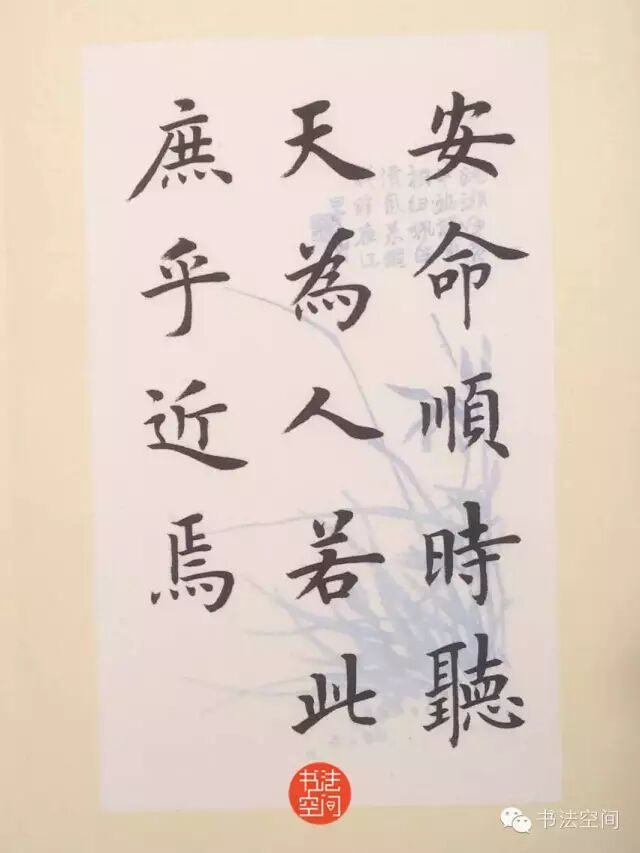 安命順時聽
天為人若此
庶乎近焉
书法空间
书法空间